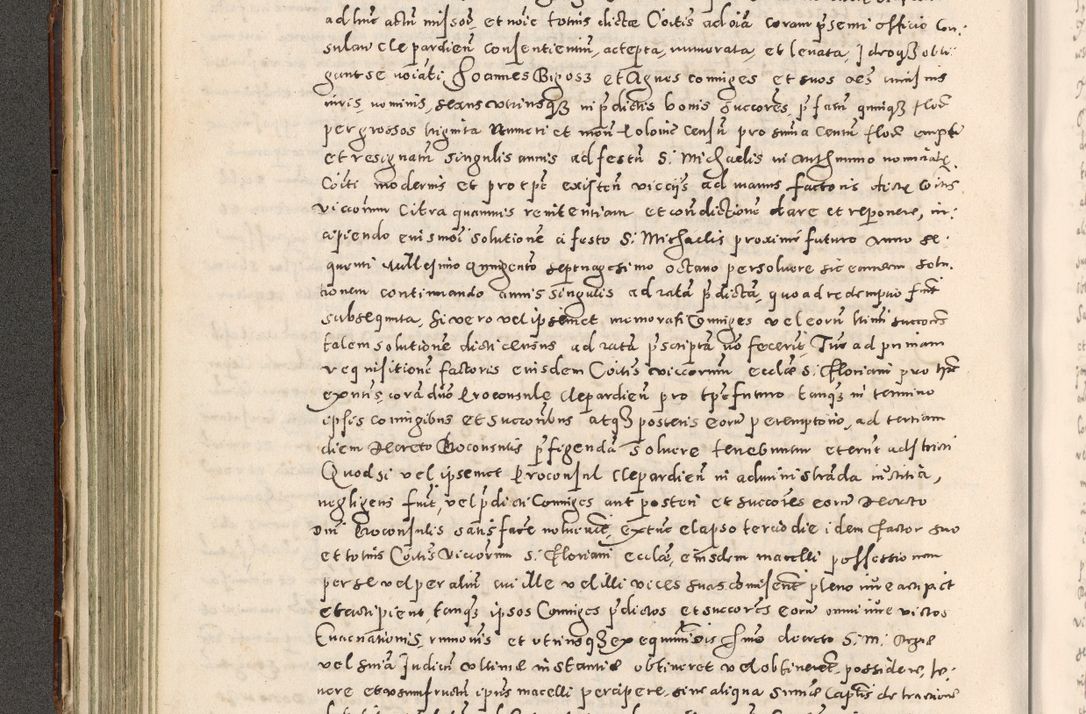 ad hunc actũ missos et noĩe totius dictæ Cõitis ad oĩa coram p̃senti officio Con,
sulari Clepardieñ consentientiũ, acceptа, numerata, et levata, Idcoq̃ obli,
gant se noĩati Joannes Bigosz et Agnes coniuges et suos oẽs
viris, nominis, sexus utriusq̃ in p̃dictis bonis succores, p̃fatũ quinq̃ flor
per grossos triginta numeri et mon̄ Poloniæ censũ pro suma Centũ flor empti
et resignatũ singulis annis ad festũ S. Michaelis
Cõiti modernis et pro tp̃e existeñ viccijs ad manus factoris dictæ Cõitis
viccorum citra quamvis renitentiam et condictionẽ dare et reponere, in,
cipiendo eiusmõi solutionẽ a festo S. Michaelis proximẽ futuro Anno se,
quenti Millesimo Quingentõ septuagesimo octavo persolvere sicẽ eandem solu,
tionem continuando annis singulis ad ratã p̃dictã, quoad redemptio
subsequuta, Si vero vel ipsimet memorati Coniuges vel eorũ ltimi succores
talem solutionẽ dicti census ad ratã p̃scriptã nõ fecerint, Tũc ad primam
requisitionẽ factoris eiusdem Cõitis viccorum ecclæ S. Floriani pro
coram dño Proconsule Clepardieñ pro tpẽ futuro tanq̃ in termino
ipsis coniugibus et succoribus atq̃ posteris eorũ peremptorio, ad tertiam
diem decreto Proconsulis p̃figendã solvere tenebuntur et erunt adstricti
Quod si vel ipsemet Proconsul Clepardieñ in administrãda iustitia,
negligens fuit, vel p̃dicti Coniuges aut posteri et succores eorũ decreto
dñi Proconsulis satisfacere noluerint, extũc elapso tercio die idem factor suo
et totius Cõitis Viccorum S. Floriani ecclæ, eiusdem macelli possessionem
per se vel per aliũ cui ille vel illi vices suas comiserit pleno iure accipiet
et accipient, tanq̃ ipsos Coniuges p̃dictos et succores eorũ omni iure victos
Evacuationis, rumonis et utriusq̃ ex decreto S. M. Regiæ
vel suma Judicũ ultimæ instantiæ obtineret vel obtinerent, possidere, te,
nere et usumfructũ ipius macelli percipere, sine aliqua sumæ Captis detractione